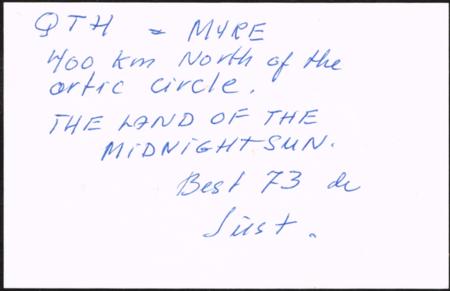 QTH = MYRE
400 km North of the
artic circle.
THE LAND OF THE
MIDNIGHTSUN.
Best 73 de
Just.